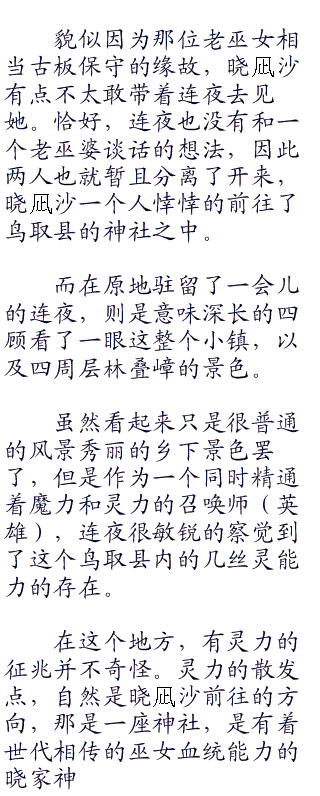 貌似因为那位老巫女相
当古板保守的缘故，晓凪沙
有点不太敢带着连夜去见
她。恰好，连夜也没有和一
个老巫婆谈话的想法，因此
两人也就暂且分离了开来，
晓凪沙一个人悻悻的前往了
鸟取县的神社之中。
而在原地驻留了一会儿
的连夜，则是意味深长的四
顾看了一眼这整个小镇，以
及四周层林叠嶂的景色。
虽然看起来只是很普通
的风景秀丽的乡下景色罢
了，但是作为一个同时精通
着魔力和灵力的召唤师（英
雄），连夜很敏锐的察觉到
了这个鸟取县内的几丝灵能
力的存在。
在这个地方，有灵力的
征兆并不奇怪。灵力的散发
点，自然是晓凪沙前往的方
向，那是一座神社，是有着
世代相传的巫女血统能力的
晓家神